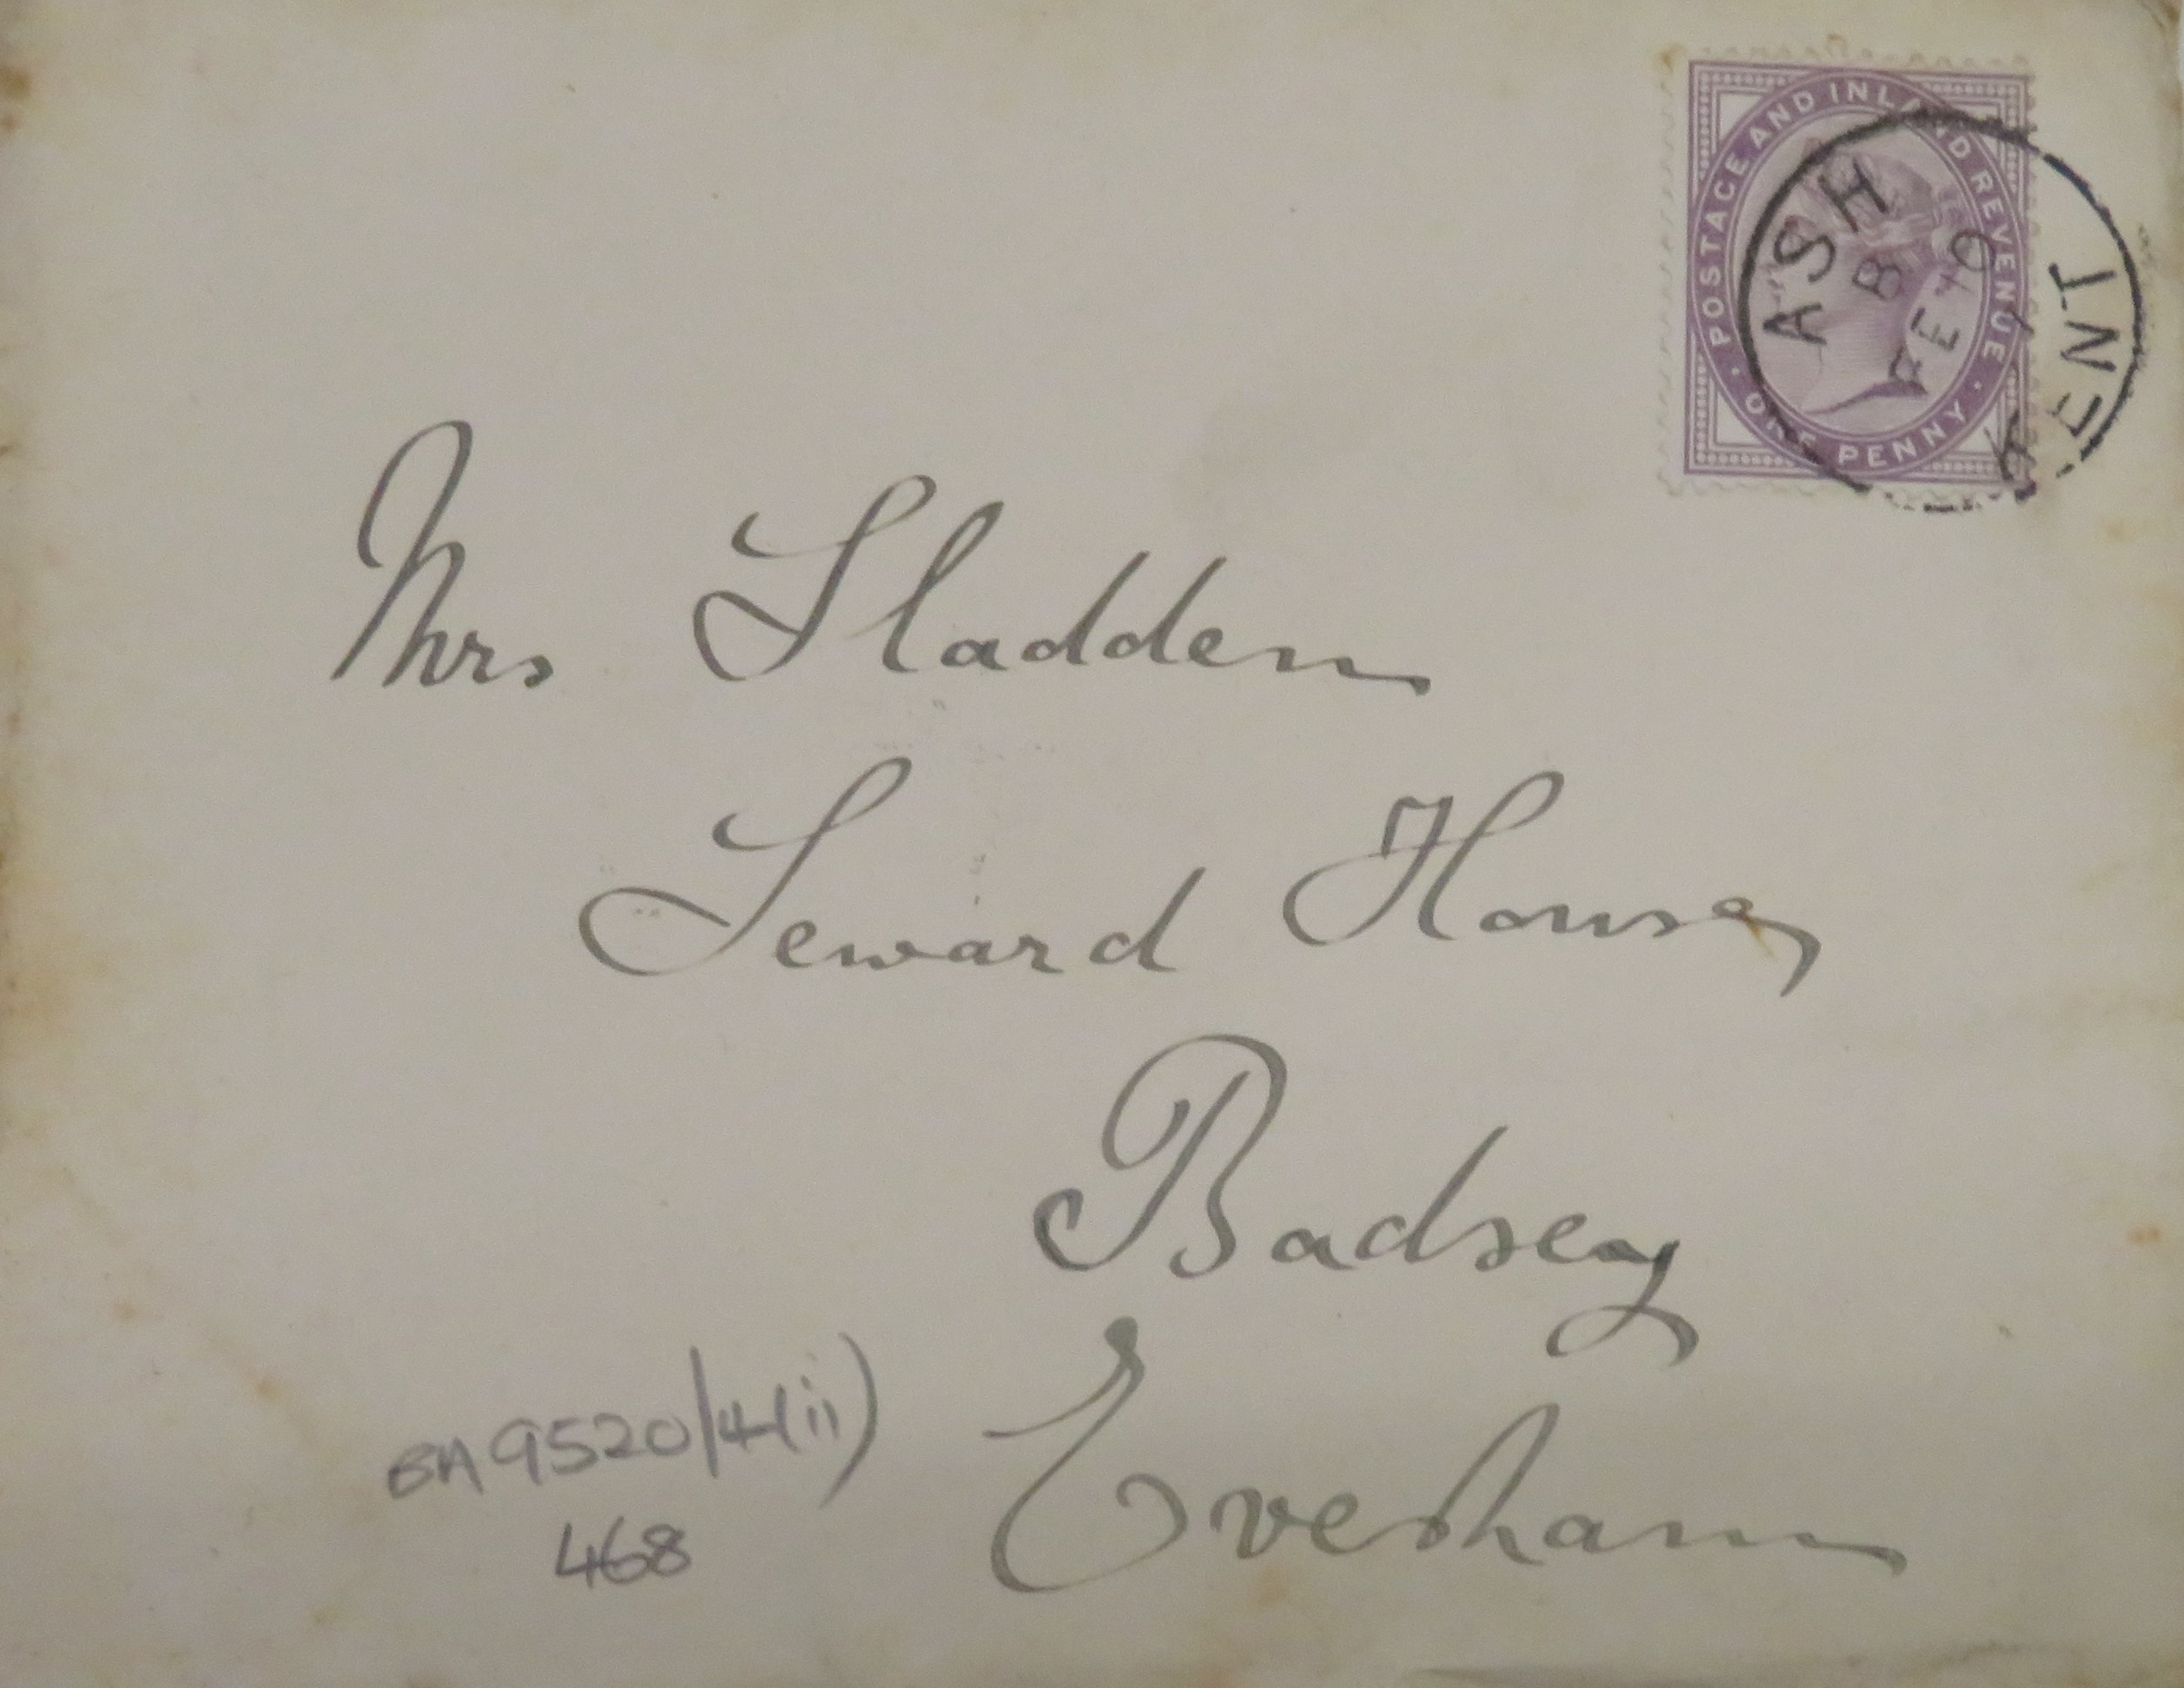 POSTAGE AND INLAND REVENUE
ONE PENNY
ASH
B
FE
KENT
Mrs Sladden
Seward House
Badsey
Evesham
BA9520/4(ii)
468